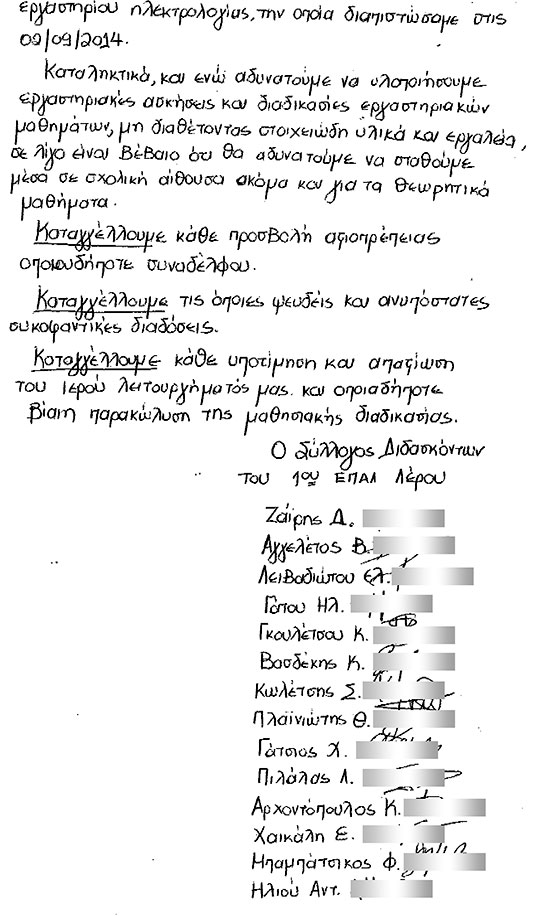 εργαστηρίου ηλεκτρολογίας, την οποία διαπιστώσαμε στις
09/09/2014.
Καταληκτικά, και ενώ αδυνατούμε να υλοποιήσουμε
εργαστηριακές ασκήσεις και διαδικασίες εργαστηριακών
μαθημάτων, μη διαθέτοντας στοιχειώδη υλικά και εργαλεία,
σε λίγο είναι βέβαιο ότι θα αδυνατούμε να σταθούμε
μέσα σε σχολική αίθουσα ακόμα και για τα θεωρητικά
μαθήματα.
Καταγγέλλουμε κάθε προσβολή αξιοπρέπειας
οποιουδήποτε συναδέλφου.
Καταγγέλλουμε τις όποιες ψευδείς και ανυπόστατες
συκοφαντικές διαδόσεις.
Καταγγέλλουμε κάθε υποτίμηση και απαξίωση
του ιερού λειτουργήματός μας και οποιαδήποτε
βίαιη παρακώλυση της μαθησιακής διαδικασίας.
Ο Σύλλογος Διδασκόντων
του 1ου ΕΠΑΛ Λέρου
Ζαΐρης Δ.
Αγγελέτος Β.
Λειβαδιώτου Ελ.
Γάτου Ηλ.
Γκουλέτσου Κ.
Βασδέκης Κ.
Κωλέτσης Σ.
Πλαϊνιώτης Θ.
Γάτσιος Χ.
Πιλάλας Λ.
Αρχοντόπουλος Κ.
Χαικάλη Ε.
Μπαμπάτσικος Φ.
Ηλιού Αντ.